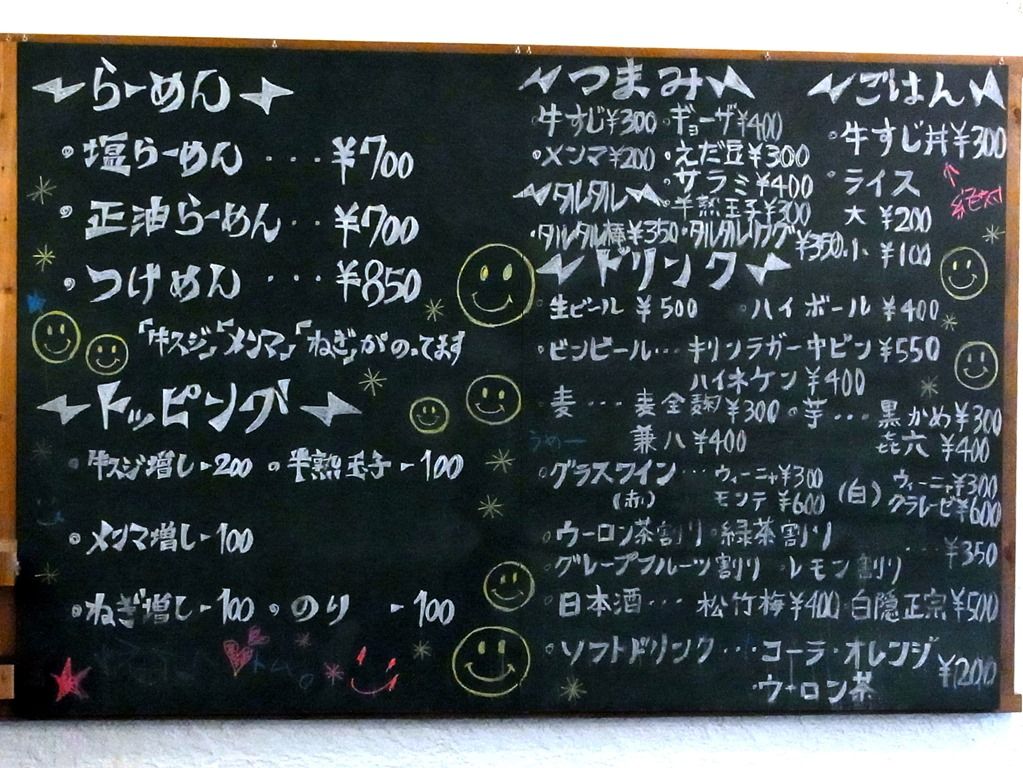 らーめん
・塩らーめん・・・¥700
・正油らーめん・・・¥700
・つけめん・・・¥850
「牛スジ」「メンマ」「ねぎ」がのってます
トッピング
・牛スジ増し-200 ・半熟玉子-100
・メンマ増し-100
・ねぎ増し-100 ・のり -100
つまみ
・牛すじ¥300 ・ギョーザ¥400
・メンマ¥200 ・えだ豆¥300
・サラミ¥400
・半熟玉子¥300
タルタル
・タルタル棒¥350 ・タルタルリング¥350
ごはん
・牛すじ丼¥300
↑絶対
・ライス
大 ¥200
小 ¥100
ドリンク
・生ビール ¥500 ・ハイボール ¥400
・ビンビール・・・キリンラガー中ビン¥550
ハイネケン¥400
・麦・・・麦全麹¥300 ・芋・・・黒かめ¥300
うめー 兼八¥400 㐂六¥400
・グラスワイン・・・ウィーニャ¥300 (白) ウィーニャ¥300
(赤) モンテ¥600 クラレービ¥600
・ウーロン茶割り ・緑茶割り
・グレープフルーツ割り ・レモン割り ・・・¥350
・日本酒・・・松竹梅¥400 白隠正宗¥500
・ソフトドリンク・・・コーラ・オレンジ
ウーロン茶 ¥200
トム。